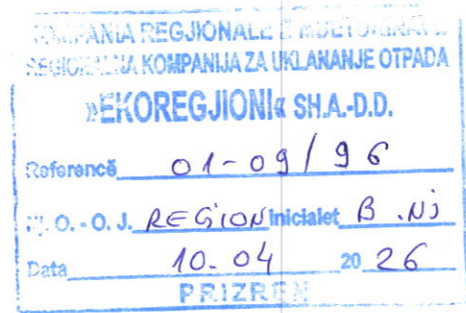 KOMPANIA REGJIONALE E MBETURINAVE
REGIONALNA KOMPANIJA ZA UKLANANJE OTPADA
»EKOREGJIONI« SH.A.-D.D.
Referencë 01-09/96
Nj. O. - O. J. REGION Inicialet B.Nj
Data 10.04 2026
PRIZREN